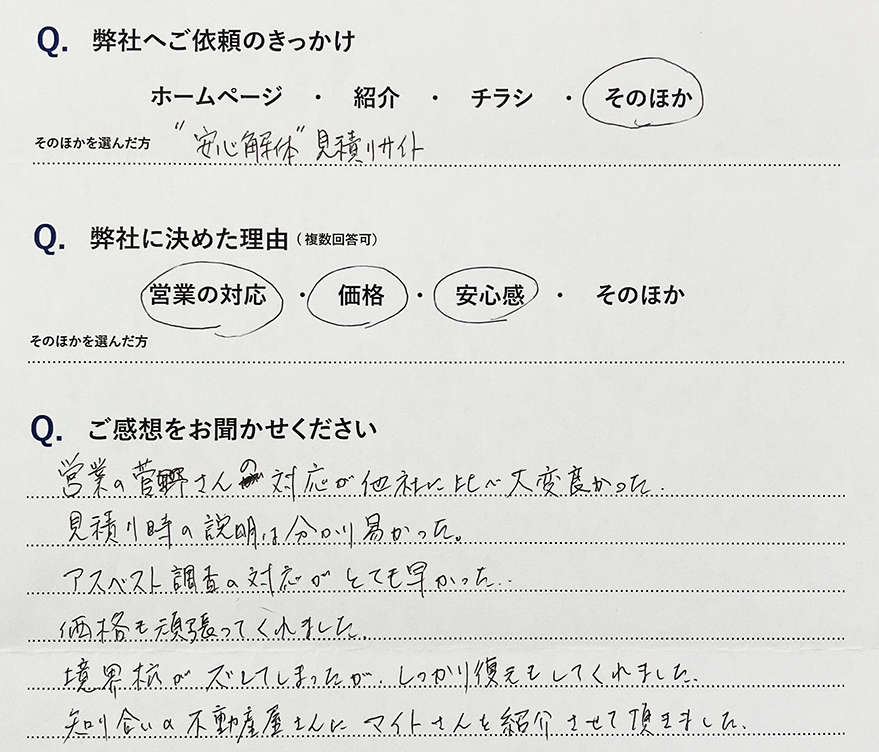 Q. 弊社へご依頼のきっかけ
ホームページ ・ 紹介 ・ チラシ ・ そのほか
そのほかを選んだ方 "安心解体"見積りサイト
Q. 弊社に決めた理由(複数回答可)
営業の対応 ・ 価格 ・ 安心感 ・ そのほか
そのほかを選んだ方
Q. ご感想をお聞かせください
営業の菅野さんの対応が他社に比べ大変良かった.
見積り時の説明は分かり易かった。
アスベスト調査の対応がとても早かった..
価格も頑張ってくれました.
境界杭がズレてしまったが、しっかり復元もしてくれました.
知り合いの不動産屋さんにマイトさんを紹介させて頂きました.